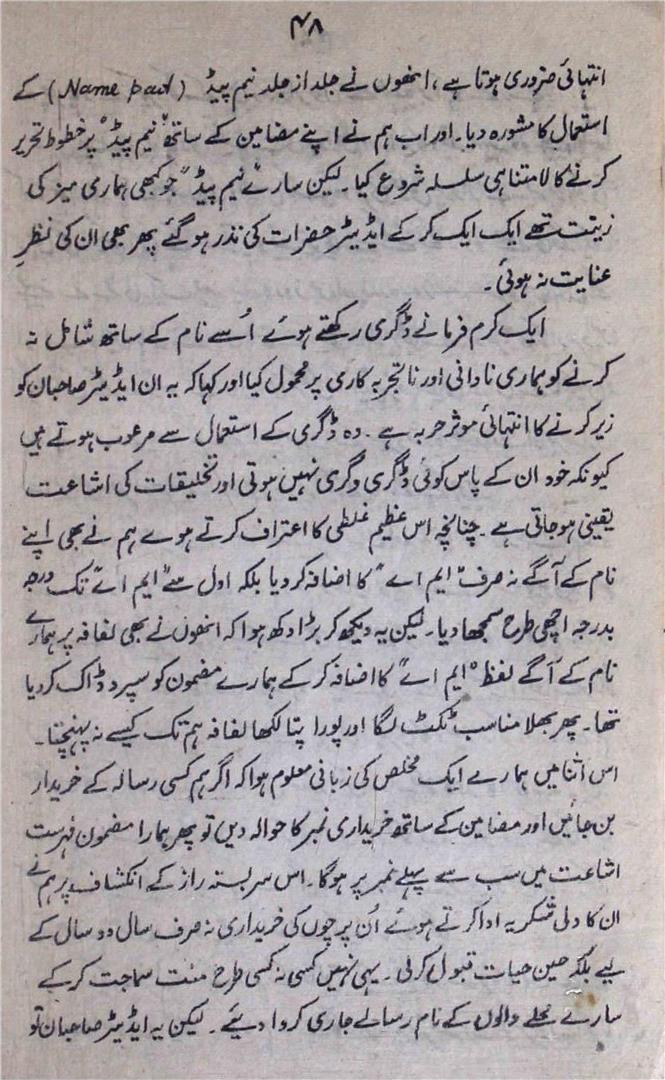 ۴۸
انتہائی ضروری ہوتا ہے، انھوں نے جلد از جلد نیم پیڈ (Name pad) کے
استعمال کا مشورہ دیا۔ اور اب ہم نے اپنے مضامین کے ساتھ "نیم پیڈ" پر خطوط تحریر
کرنے کا لامتناہی سلسلہ شروع کیا۔ لیکن سارے "نیم پیڈ" جو کبھی ہماری میز کی
زینت تھے ایک ایک کر کے ایڈیٹر حضرات کی نذر ہو گئے پھر بھی ان کی نظرِ
عنایت نہ ہوئی۔
ایک کرم فرما نے ڈگری رکھتے ہوئے اُسے نام کے ساتھ شامل نہ
کرنے کو ہماری نادانی اور ناتجربہ کاری پر محمول کیا اور کہا کہ یہ ان ایڈیٹر صاحبان کو
زیر کرنے کا انتہائی موثر حربہ ہے۔ وہ ڈگری کے استعمال سے مرعوب ہوتے ہیں
کیونکہ خود ان کے پاس کوئی ڈگری وگری نہیں ہوتی اور تخلیقات کی اشاعت
یقینی ہو جاتی ہے۔ چنانچہ اس عظیم غلطی کا اعتراف کرتے ہوے ہم نے بھی اپنے
نام کے آگے نہ صرف "ایم اے" کا اضافہ کر دیا بلکہ اول سے "ایم اے" تک درجہ
بدرجہ اچھی طرح سمجھا دیا۔ لیکن یہ دیکھ کر بڑا دکھ ہوا کہ انھوں نے بھی لفافہ پر ہمارے
نام کے آگے لفظ "ایم اے" کا اضافہ کر کے ہمارے مضمون کو سپرد ڈاک کر دیا
تھا۔ پھر بھلا مناسب ٹکٹ لگا اور پورا پتا لکھا لفافہ ہم تک کیسے نہ پہنچتا۔
اس اثنا میں ہمارے ایک مخلص کی زبانی معلوم ہوا کہ اگر ہم کسی رسالہ کے خریدار
بن جائیں اور مضامین کے ساتھ خریداری نمبر کا حوالہ دیں تو پھر ہمارا مضمون فہرست
اشاعت میں سب سے پہلے نمبر پر ہوگا۔ اس سربستہ راز کے انکشاف پر ہم نے
ان کا دلی شکریہ ادا کرتے ہوئے اُن پرچوں کی خریداری نہ صرف سال دو سال کے
لیے بلکہ حین حیات قبول کر لی۔ یہی نہیں کسی نہ کسی طرح منت سماجت کر کے
سارے محلے والوں کے نام رسالے جاری کروا دیئے۔ لیکن یہ ایڈیٹر صاحبان تو